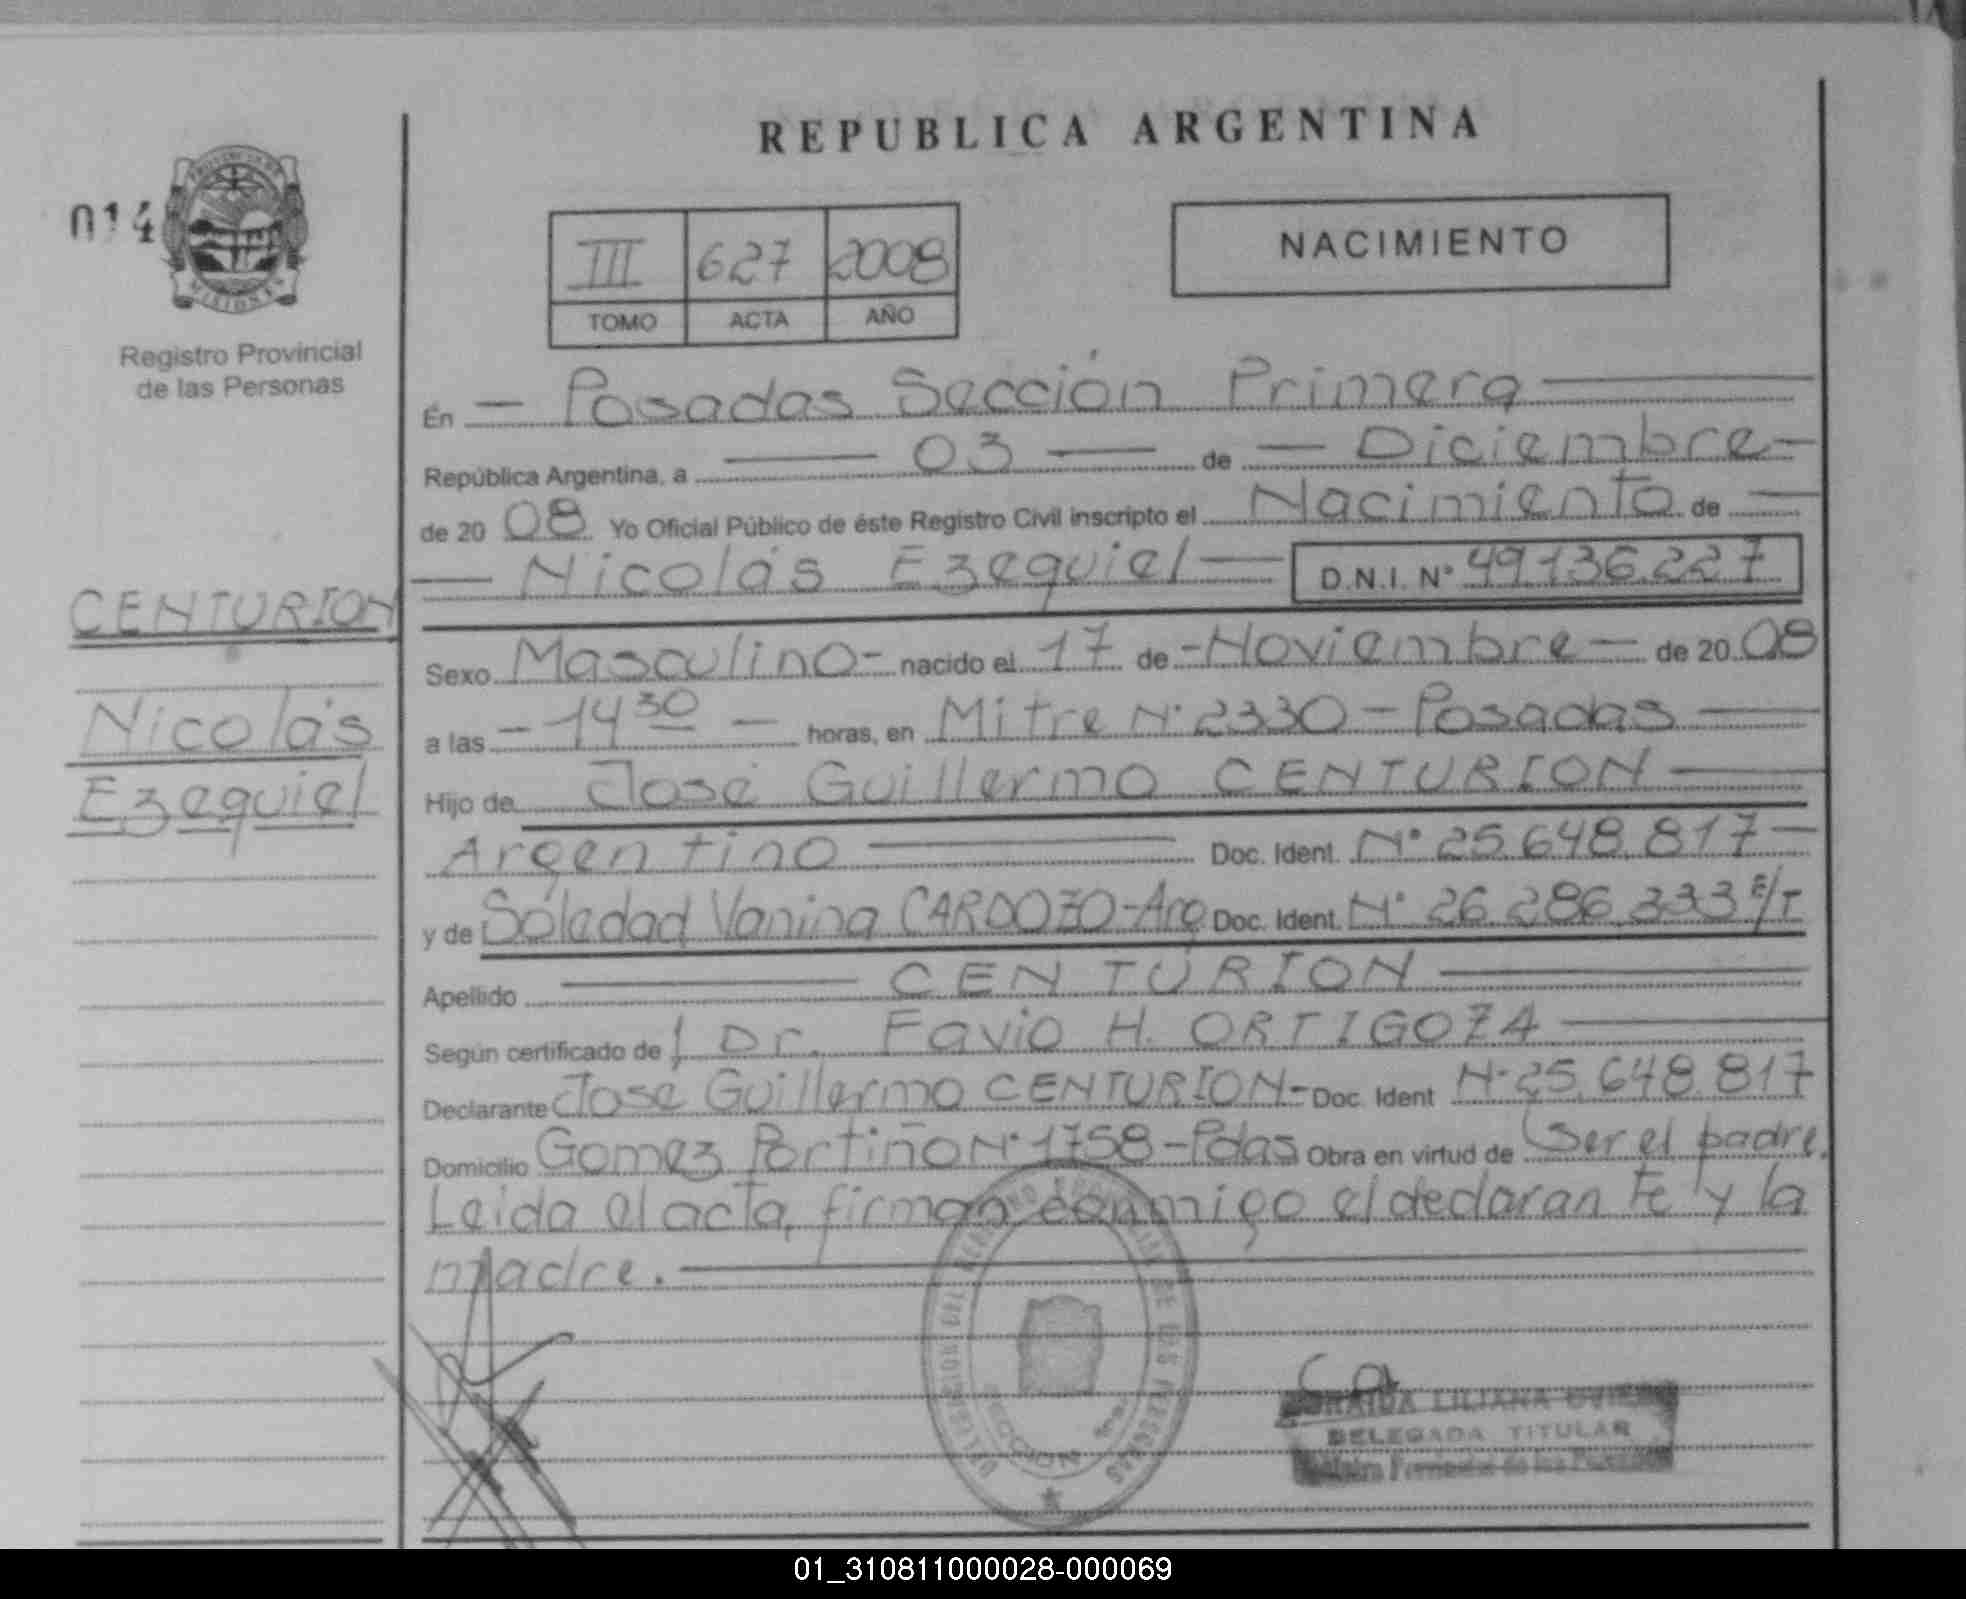 REPUBLICA ARGENTINA
014
PROVINCIA DE
MISIONES
Registro Provincial
de las Personas
III 627 2008
TOMO ACTA AÑO
NACIMIENTO
En - Posadas Sección Primera
República Argentina, a 03 de - Diciembre -
de 20 08 Yo Oficial Público de éste Registro Civil inscripto el Nacimiento de
Nicolás Ezequiel D.N.I. Nº 49.136.227
CENTURION
Nicolás
Ezequiel
Sexo Masculino - nacido el 17 de - Noviembre - de 20 08
a las - 14 30 - horas, en Mitre Nº 2330 - Posadas
Hijo de José Guillermo CENTURION
Argentino Doc. Ident. Nº 25.648.817 -
y de Soledad Vanina CARDOZO - Arg Doc. Ident. Nº 26.286.333 E/T
Apellido CENTURION
Según certificado de Dr. Favio H. ORTIGOZA
Declarante José Guillermo CENTURION - Doc. Ident Nº 25.648.817
Domicilio Gomez Portiño Nº 1758 - Pdas Obra en virtud de Ser el padre.
Leida el acta, firman conmigo el declaran te y la
madre.
LILIANA
DELEGADA TITULAR
01_310811000028-000069